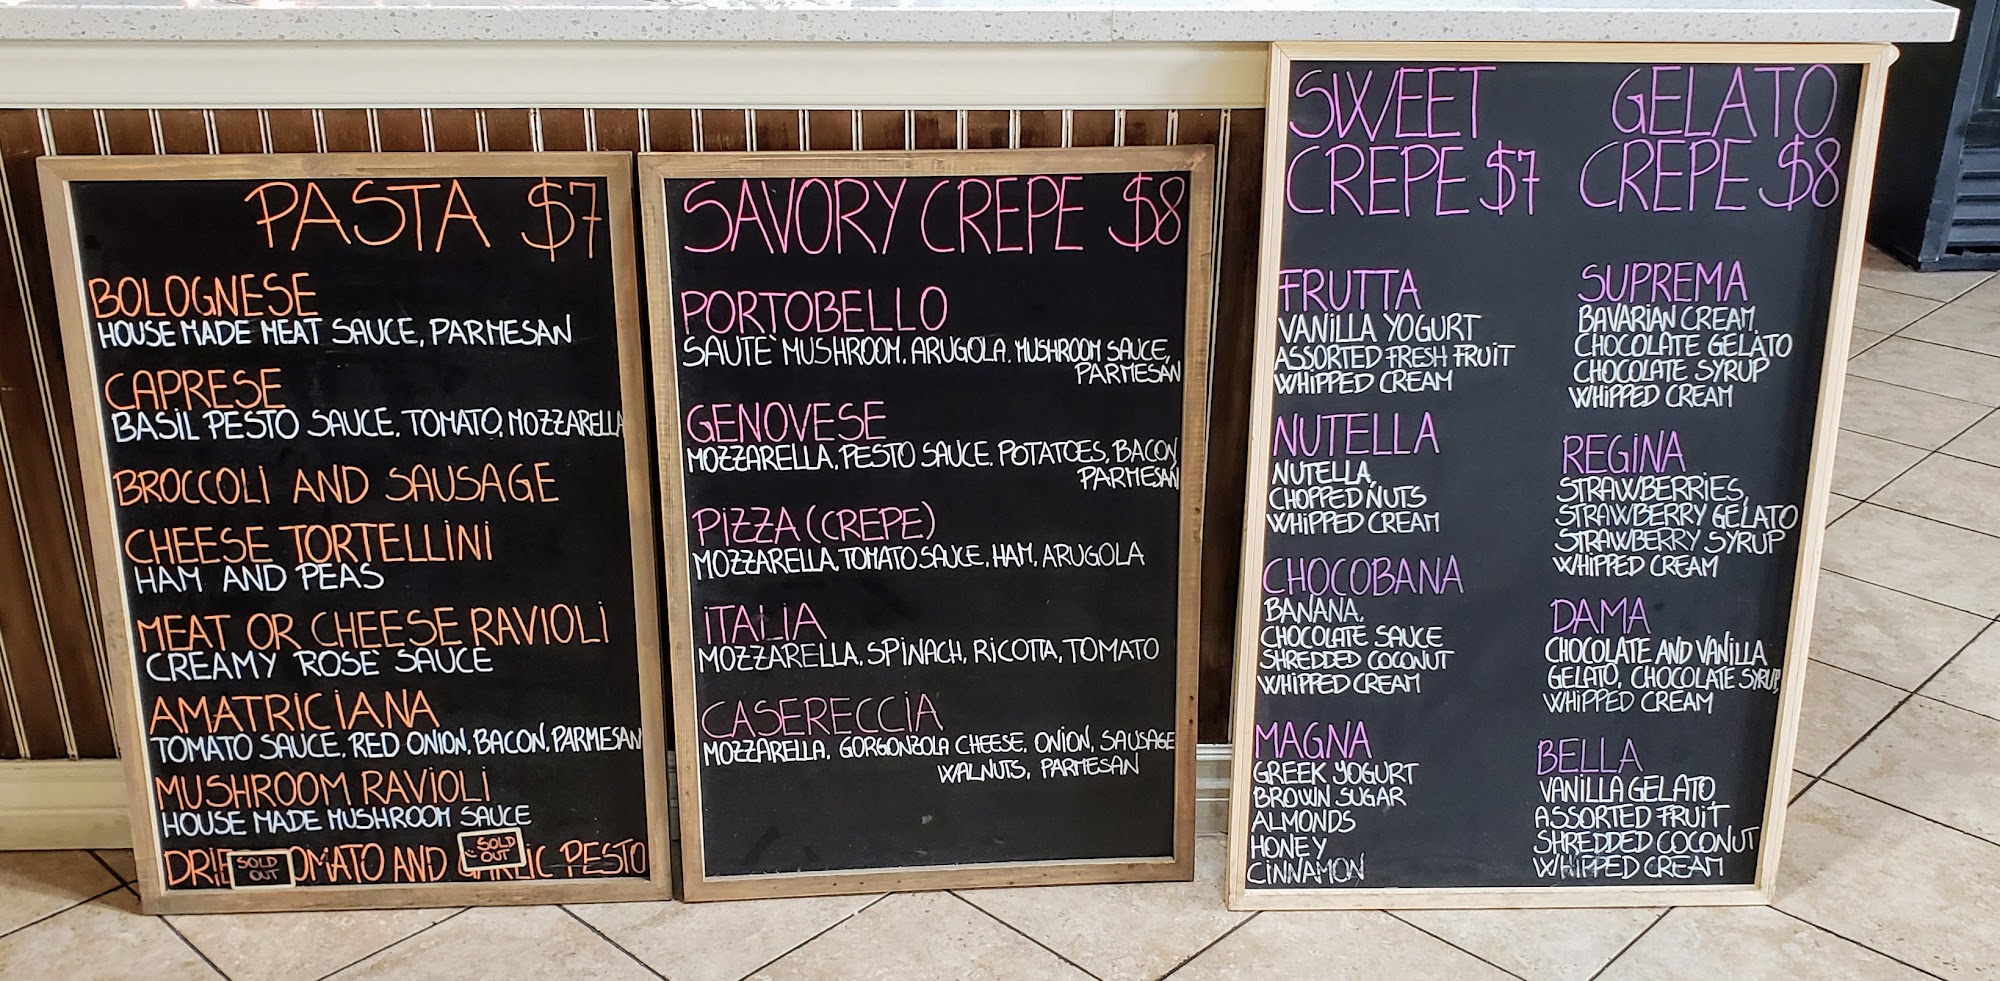 PASTA $7
BOLOGNESE
HOUSE MADE MEAT SAUCE, PARMESAN
CAPRESE
BASIL PESTO SAUCE, TOMATO, MOZZARELLA
BROCCOLI AND SAUSAGE
CHEESE TORTELLINI
HAM AND PEAS
MEAT OR CHEESE RAVIOLI
CREAMY ROSÈ SAUCE
AMATRICIANA
TOMATO SAUCE, RED ONION, BACON, PARMESAN
MUSHROOM RAVIOLI
HOUSE MADE MUSHROOM SAUCE
SOLD OUT
SOLD OUT
AND PESTO
SAVORY CREPE $8
PORTOBELLO
SAUTE` MUSHROOM, ARUGOLA, MUSHROOM SAUCE,
PARMESAN
GENOVESE
MOZZARELLA, PESTO SAUCE, POTATOES, BACON,
PARMESAN
PIZZA (CREPE)
MOZZARELLA, TOMATO SAUCE, HAM, ARUGOLA
ITALIA
MOZZARELLA, SPINACH, RICOTTA, TOMATO
CASERECCIA
MOZZARELLA, GORGONZOLA CHEESE, ONION, SAUSAGE
WALNUTS, PARMESAN
SWEET
CREPE $7
FRUTTA
VANILLA YOGURT
ASSORTED FRESH FRUIT
WHIPPED CREAM
NUTELLA
NUTELLA,
CHOPPED NUTS
WHIPPED CREAM
CHOCOBANA
BANANA,
CHOCOLATE SAUCE
SHREDDED COCONUT
WHIPPED CREAM
MAGNA
GREEK YOGURT
BROWN SUGAR
ALMONDS
HONEY
CINNAMON
GELATO
CREPE $8
SUPREMA
BAVARIAN CREAM,
CHOCOLATE GELATO
CHOCOLATE SYRUP
WHIPPED CREAM
REGINA
STRAWBERRIES,
STRAWBERRY GELATO
STRAWBERRY SYRUP
WHIPPED CREAM
DAMA
CHOCOLATE AND VANILLA
GELATO, CHOCOLATE SYRUP,
WHIPPED CREAM
BELLA
VANILLA GELATO,
ASSORTED FRUIT
SHREDDED COCONUT
WHIPPED CREAM